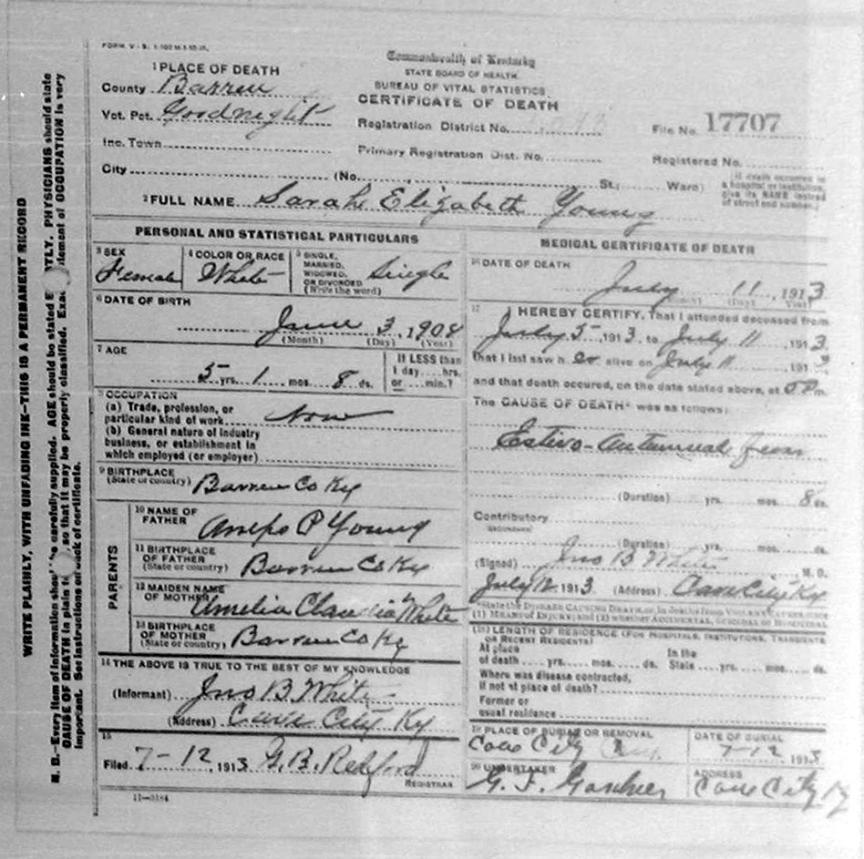 Commonwealth of Kentucky
STATE BOARD OF HEALTH
BUREAU OF VITAL STATISTICS
CERTIFICATE OF DEATH
1 PLACE OF DEATH
County Barren
Vot. Pct. Goodnight
Registration District No.
File No. 17707
Inc. Town
Primary Registration Dist. No.
Registered No.
City (No. St.; Ward)
[If death occurred in a hospital or institution, give its NAME instead of street and number.]
2 FULL NAME Sarah Elizabeth Young
PERSONAL AND STATISTICAL PARTICULARS
3 SEX Female
4 COLOR OR RACE White
5 SINGLE, MARRIED, WIDOWED OR DIVORCED (Write the word) Single
6 DATE OF BIRTH
June 3, 1908
(Month) (Day) (Year)
7 AGE
5 yrs. 1 mos. 8 ds.
If LESS than 1 day...hrs. or...min.?
8 OCCUPATION
(a) Trade, profession, or
particular kind of work
(b) General nature of industry
business, or establishment in
which employed (or employer)
9 BIRTHPLACE
(State or country) Barren Co Ky
PARENTS
10 NAME OF
FATHER P Young
11 BIRTHPLACE
OF FATHER
(State or country) Barren Co Ky
12 MAIDEN NAME
OF MOTHER Amelia White
13 BIRTHPLACE
OF MOTHER
(State or country) Barren Co Ky
14 THE ABOVE IS TRUE TO THE BEST OF MY KNOWLEDGE
(Informant) Jno B. White
(Address) Cave City Ky
15
Filed 7-12, 1913 G.B.
REGISTRAR
11-3184
MEDICAL CERTIFICATE OF DEATH
16 DATE OF DEATH
July 11, 1913
(Month) (Day) (Year)
17 I HEREBY CERTIFY, That I attended deceased from
July 5 1913 to July 11 1913
that I last saw her alive on July 11 1913
and that death occured, on the date stated above, at m.
The CAUSE OF DEATH* was as follows:
Estivo-Autumnal
(Duration) yrs. mos. 8 ds.
Contributory
(Duration) yrs. mos. ds.
(Signed) Jno B White M. D.
July 12 1913 (Address) Cave City Ky
*State the DISEASE CAUSING DEATH, or, in deaths from VIOLENT CAUSES, state
(1) MEANS OF INJURY; and (2) whether ACCIDENTAL, SUICIDAL or HOMICIDAL
(18) LENGTH OF RESIDENCE (FOR HOSPITALS, INSTITUTIONS, TRANSIENTS
OR RECENT RESIDENTS)
At place In the
of death yrs. mos. ds. State yrs. mos. ds.
Where was disease contracted,
if not at place of death?
Former or
usual residence
19 PLACE OF BURIAL OR REMOVAL
Cave City
DATE OF BURIAL
7-12 1913
20 UNDERTAKER
ADDRESS
Cave City Ky
WRITE PLAINLY, WITH UNFADING INK—THIS IS A PERMANENT RECORD
N. B.—Every item of information should be carefully supplied. AGE should be stated PHYSICIANS should state
CAUSE OF DEATH in plain so that it may be properly classified. OCCUPATION is very
important. See instructions on back of certificate.